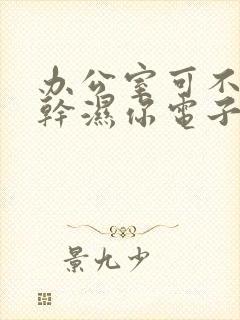 办公室可不
幹濕你電子
景九少